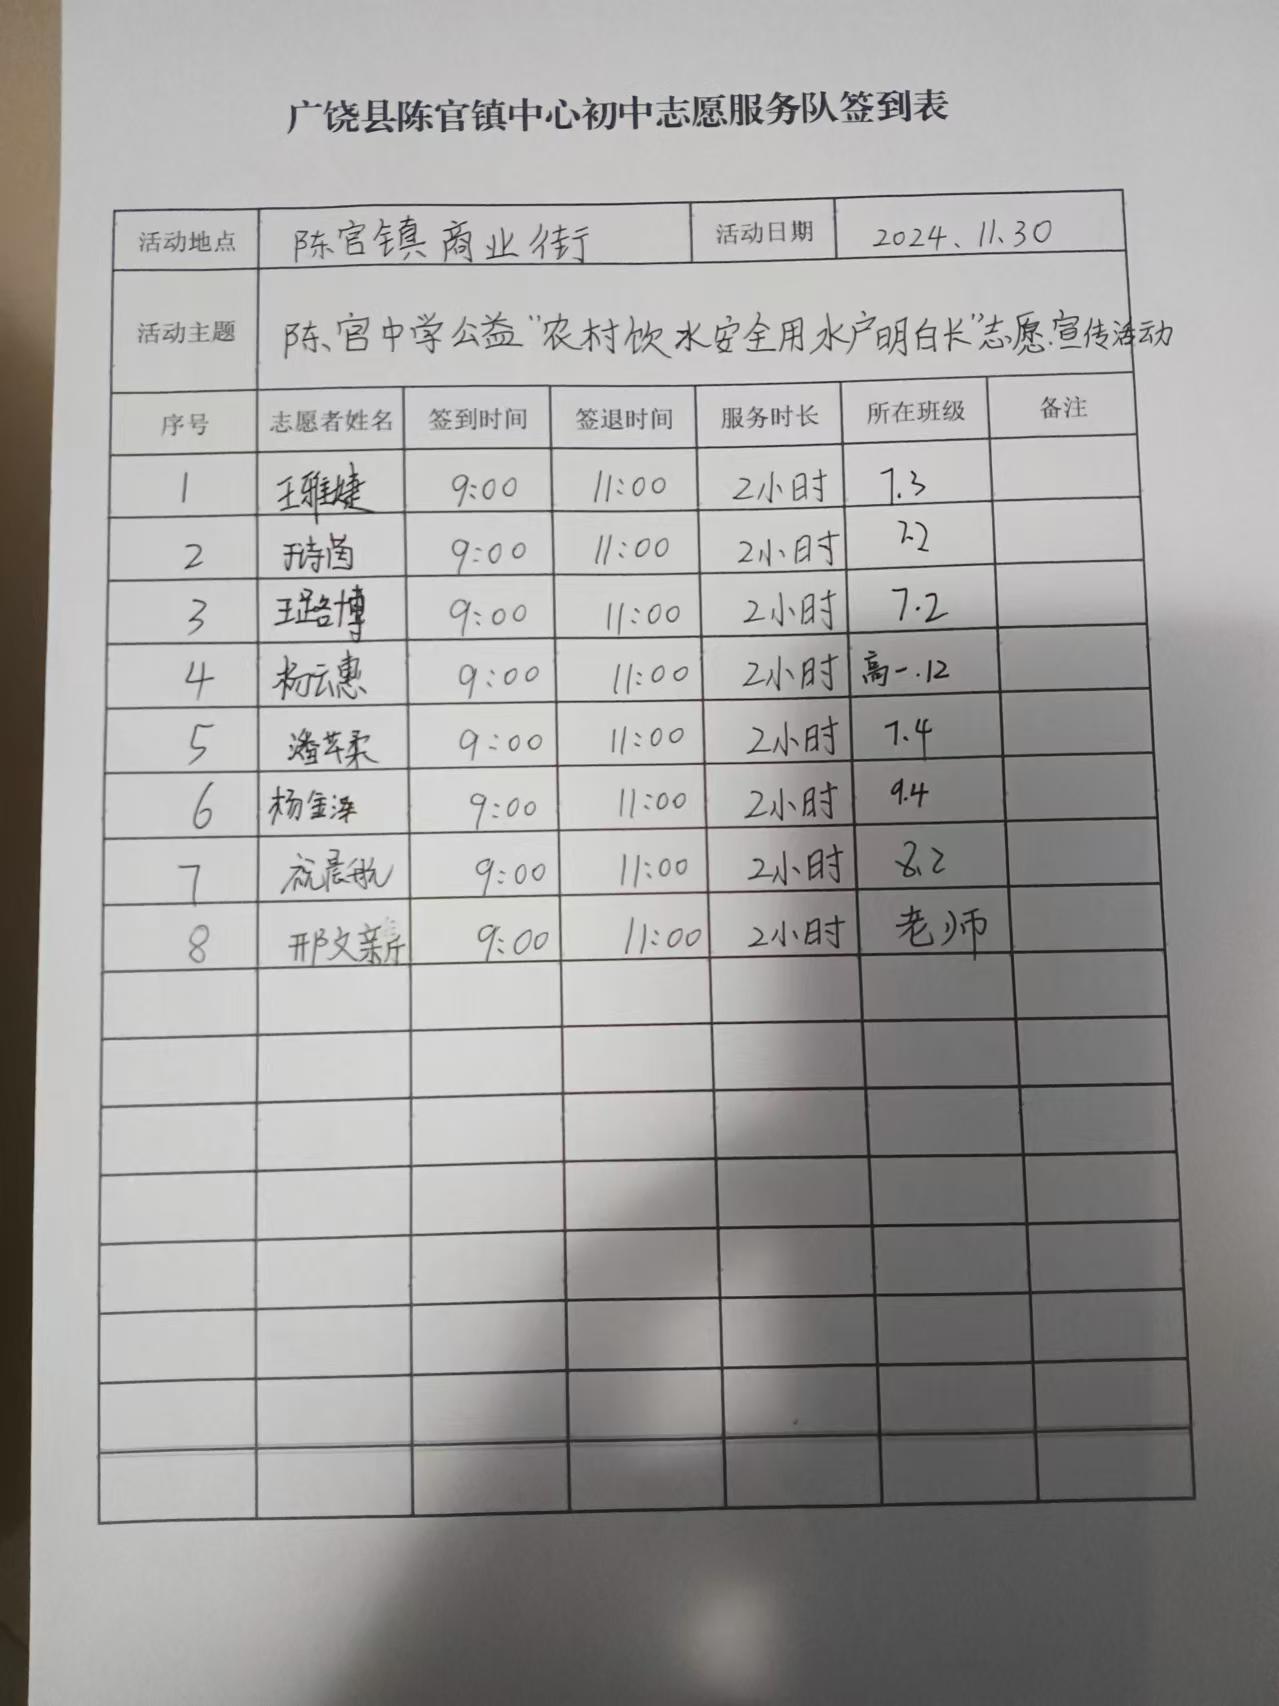 广饶县陈官镇中心初中志愿服务队签到表
活动地点 陈官镇商业街 活动日期 2024、11.30
活动主题 陈官中学公益"农村饮水安全用水户明白长"志愿宣传活动
序号 志愿者姓名 签到时间 签退时间 服务时长 所在班级 备注
1 王雅婕 9:00 11:00 2小时 7.3
2 于诗茵 9:00 11:00 2小时 7.2
3 王路博 9:00 11:00 2小时 7.2
4 杨云惠 9:00 11:00 2小时 高一.12
5 潘芊柔 9:00 11:00 2小时 7.4
6 杨金泽 9:00 11:00 2小时 9.4
7 祝晨航 9:00 11:00 2小时 8.2
8 邢文新 9:00 11:00 2小时 老师